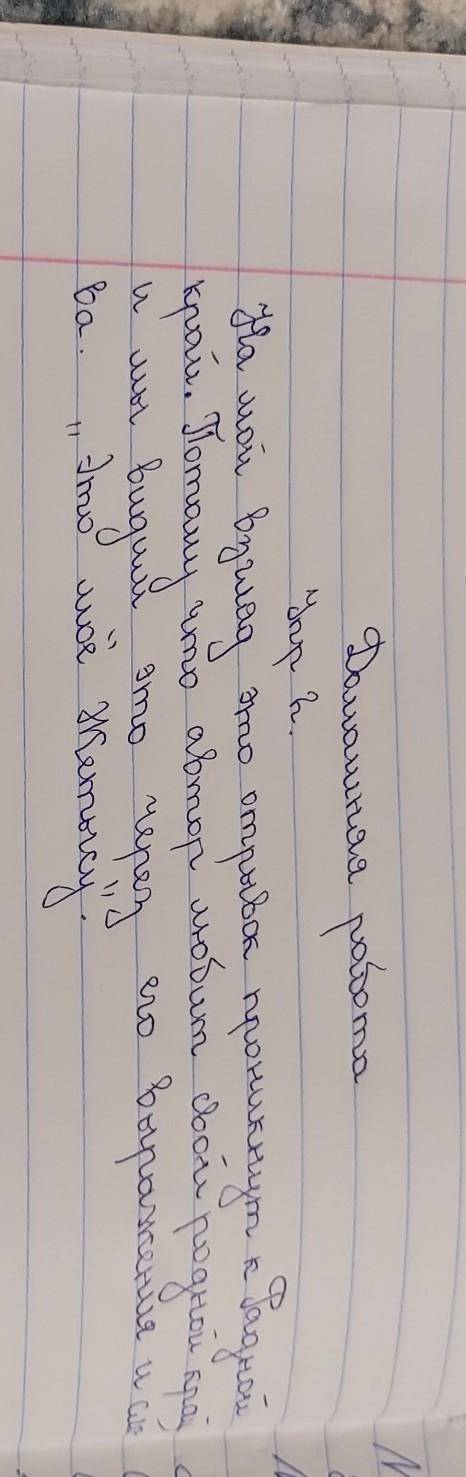 Домашняя работа
Упр 2.
На мой взгляд это отрывок проникнут к Радной
край. Потому что автор любит свой родной край
и мы видим это через его выражения и сло
ва. „Это моё Жетысу."